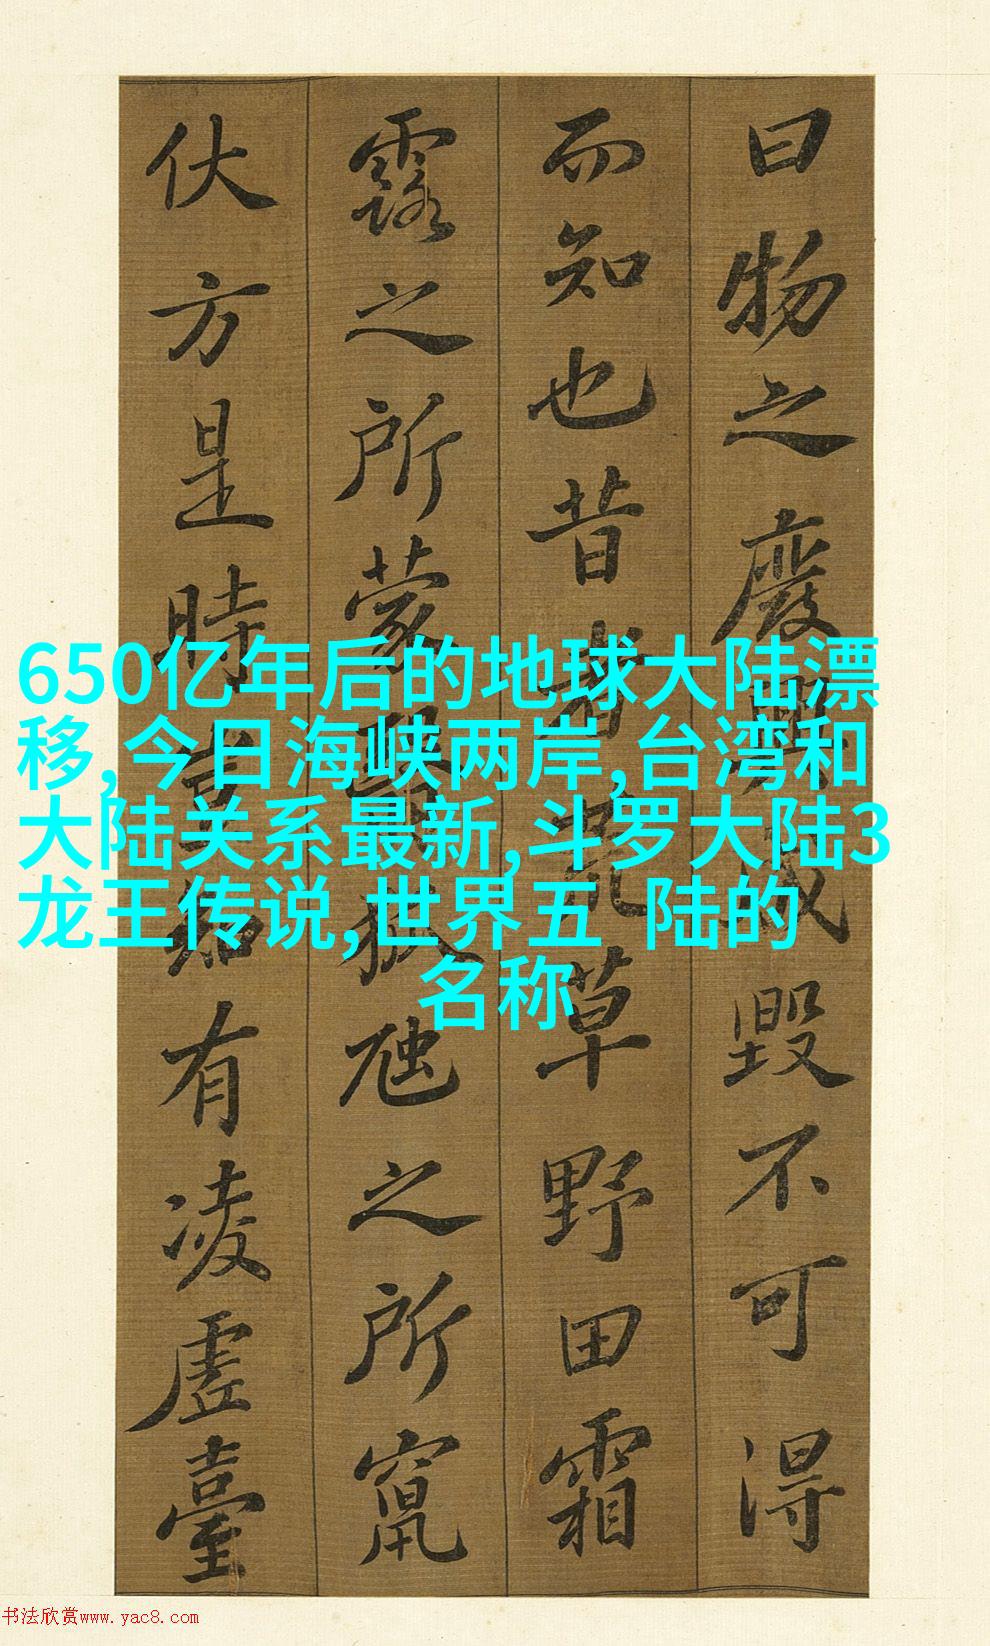 曰物之廢興成毀不可得
而知也昔者荒草野田霜
露之所蒙翳狐虺之所竄
伏方是時豈知有凌虛臺
650亿年后的地球大陆漂
移,今日海峡两岸,台湾和
大陆关系最新,斗罗大陆3
龙王传说,世界五 陆的
名称
书法欣赏www.yac8.com